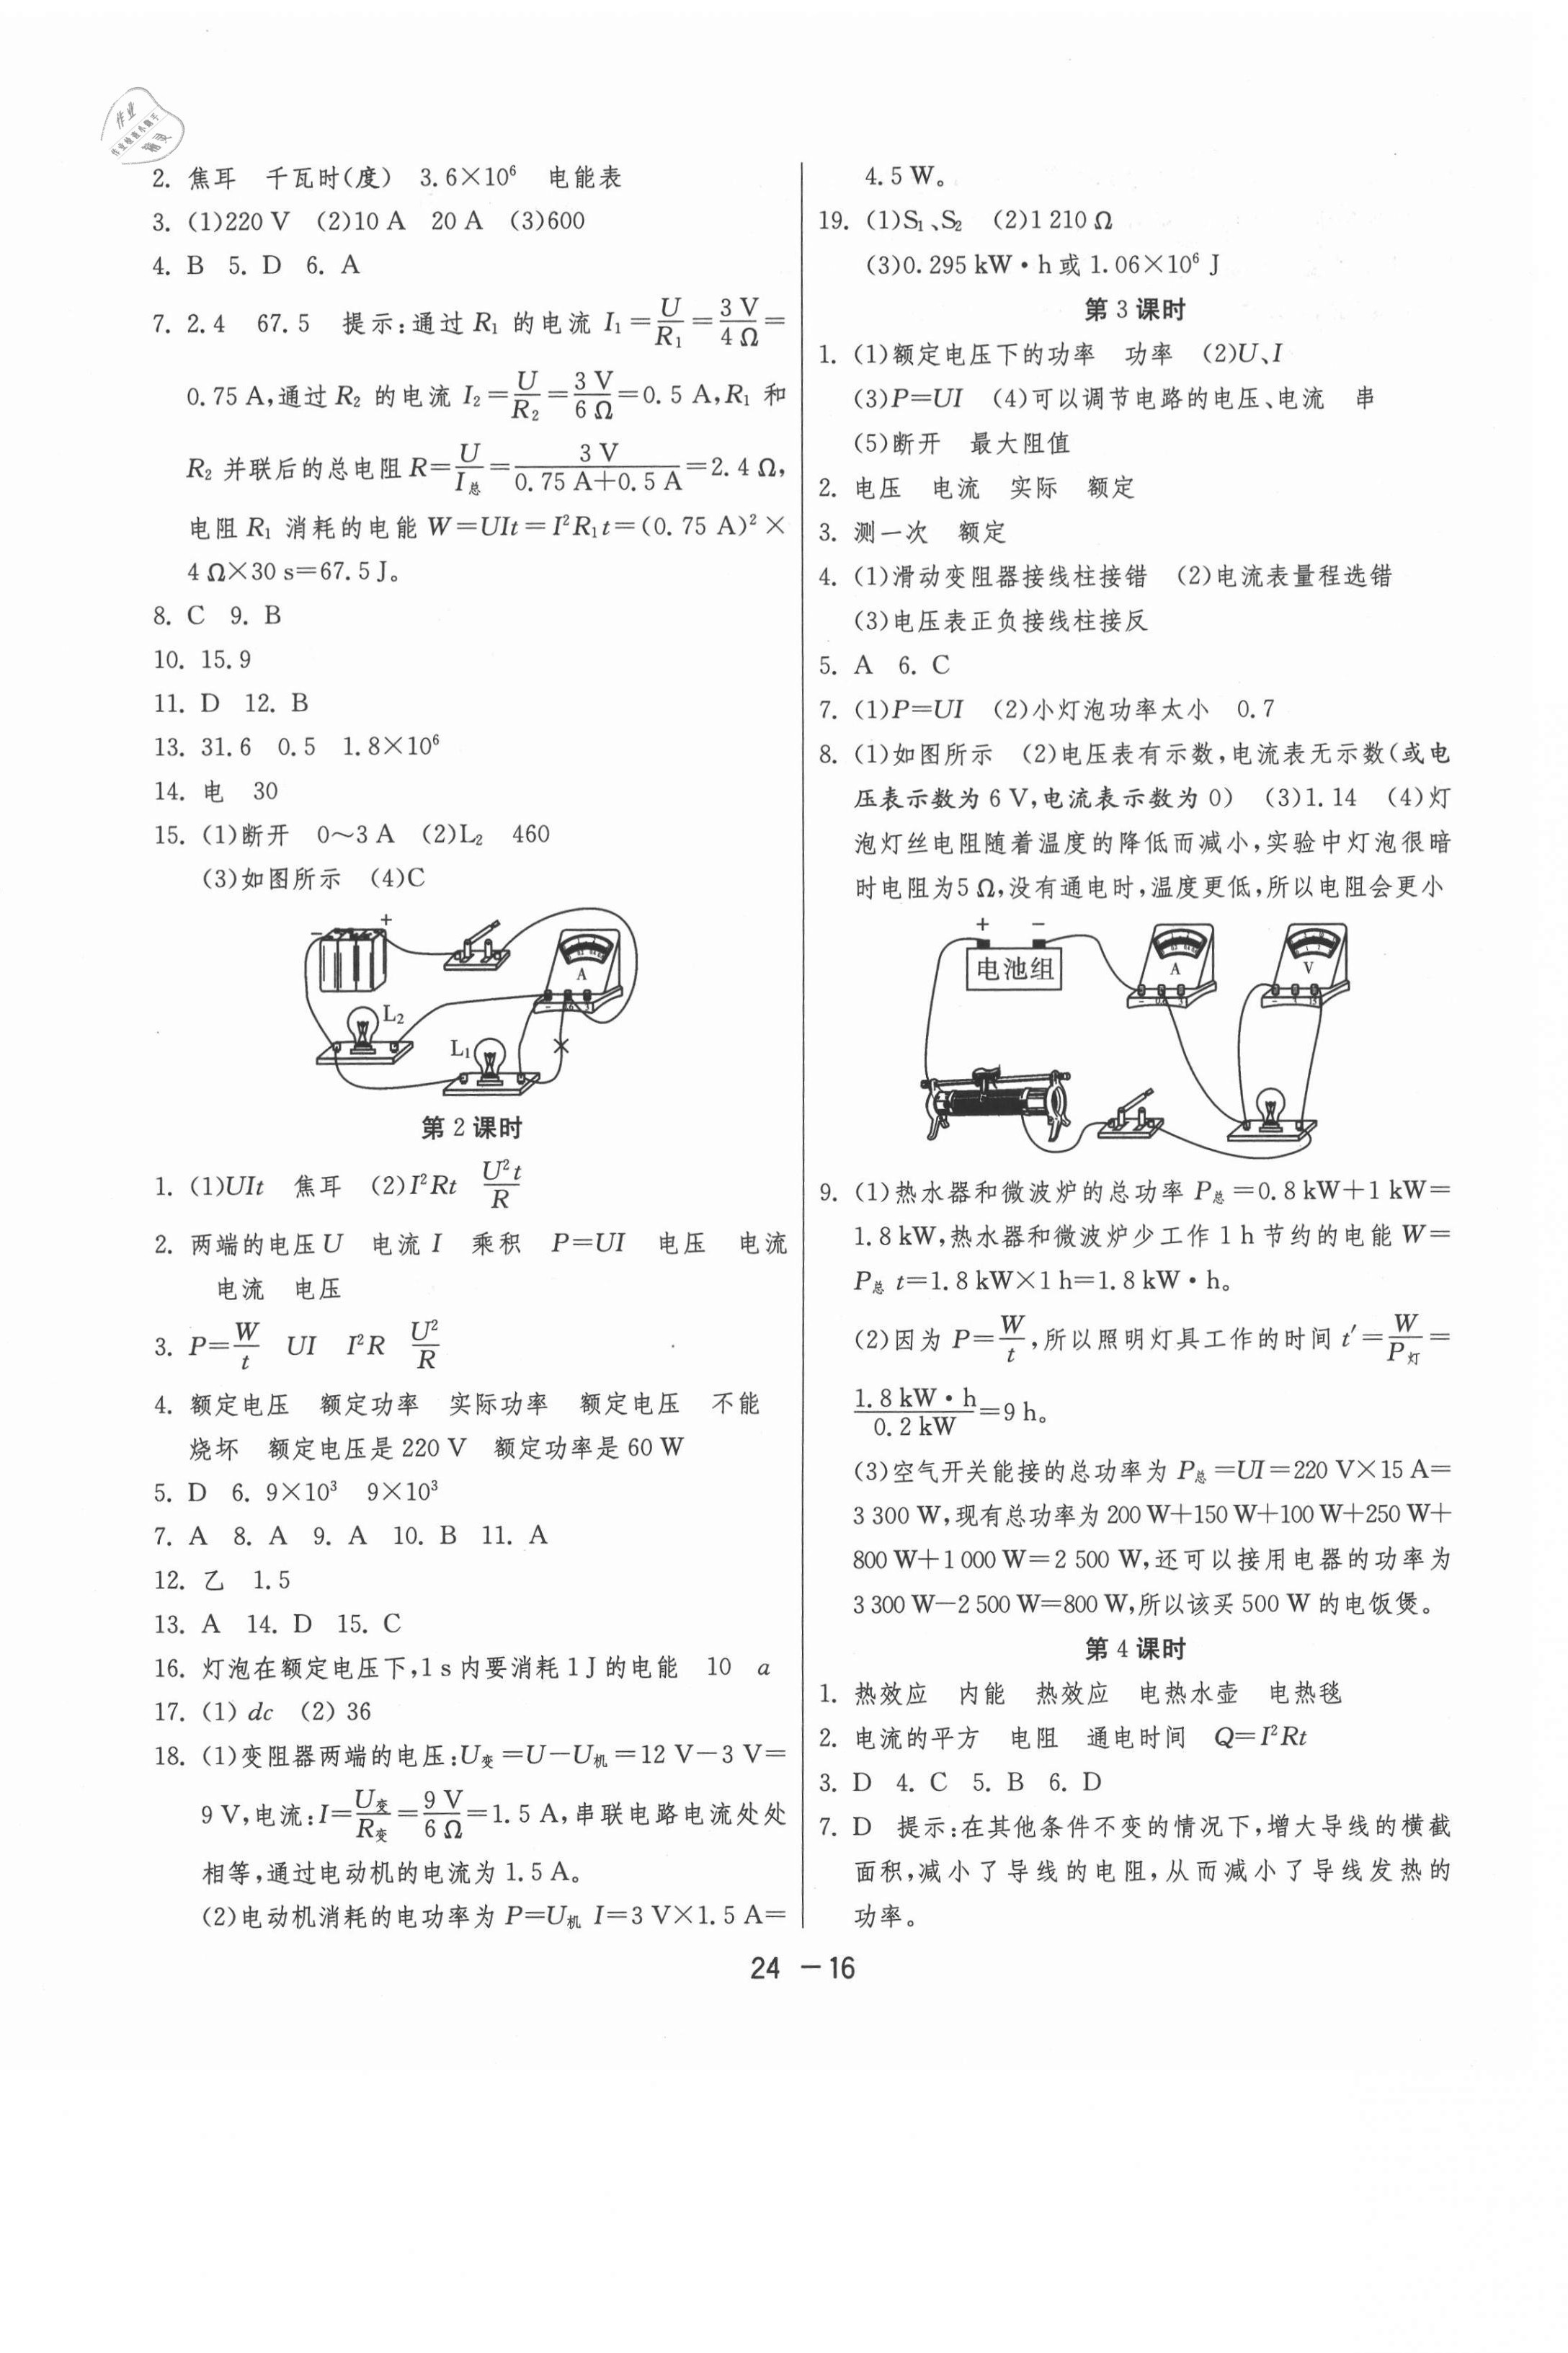 作业
作业检查小助手
精灵
2. 焦耳 千瓦时(度) 3.6×10⁶ 电能表
3. (1)220 V (2)10 A 20 A (3)600
4. B 5. D 6. A
7. 2.4 67.5 提示:通过 R₁ 的电流 I₁=U/R₁=3 V/4 Ω=
0.75 A,通过 R₂ 的电流 I₂=U/R₂=3 V/6 Ω=0.5 A,R₁ 和
R₂ 并联后的总电阻 R=U/I总=3 V/(0.75 A+0.5 A)=2.4 Ω,
电阻 R₁ 消耗的电能 W=UIt=I²R₁t=(0.75 A)²×
4 Ω×30 s=67.5 J。
8. C 9. B
10. 15.9
11. D 12. B
13. 31.6 0.5 1.8×10⁶
14. 电 30
15. (1)断开 0～3 A (2)L₂ 460
(3)如图所示 (4)C
− +
A
L₂
L₁
第 2 课时
1. (1)UIt 焦耳 (2)I²Rt U²t/R
2. 两端的电压 U 电流 I 乘积 P=UI 电压 电流
电流 电压
3. P=W/t UI I²R U²/R
4. 额定电压 额定功率 实际功率 额定电压 不能
烧坏 额定电压是 220 V 额定功率是 60 W
5. D 6. 9×10³ 9×10³
7. A 8. A 9. A 10. B 11. A
12. 乙 1.5
13. A 14. D 15. C
16. 灯泡在额定电压下,1 s 内要消耗 1 J 的电能 10 a
17. (1) dc (2) 36
18. (1)变阻器两端的电压:U变=U−U机=12 V−3 V=
9 V,电流:I=U变/R变=9 V/6 Ω=1.5 A,串联电路电流处处
相等,通过电动机的电流为 1.5 A。
(2)电动机消耗的电功率为 P=U机 I=3 V×1.5 A=
4.5 W。
19. (1)S₁、S₂ (2)1 210 Ω
(3)0.295 kW·h 或 1.06×10⁶ J
第 3 课时
1. (1)额定电压下的功率 功率 (2)U、I
(3)P=UI (4)可以调节电路的电压、电流 串
(5)断开 最大阻值
2. 电压 电流 实际 额定
3. 测一次 额定
4. (1)滑动变阻器接线柱接错 (2)电流表量程选错
(3)电压表正负接线柱接反
5. A 6. C
7. (1)P=UI (2)小灯泡功率太小 0.7
8. (1)如图所示 (2)电压表有示数,电流表无示数(或电
压表示数为 6 V,电流表示数为 0) (3)1.14 (4)灯
泡灯丝电阻随着温度的降低而减小,实验中灯泡很暗
时电阻为5 Ω,没有通电时,温度更低,所以电阻会更小
+ −
电池组
A
V
9. (1)热水器和微波炉的总功率 P总=0.8 kW+1 kW=
1.8 kW,热水器和微波炉少工作 1 h 节约的电能 W=
P总 t=1.8 kW×1 h=1.8 kW·h。
(2)因为 P=W/t,所以照明灯具工作的时间 t′=W/P灯=
1.8 kW·h/0.2 kW=9 h。
(3)空气开关能接的总功率为 P总=UI=220 V×15 A=
3 300 W,现有总功率为 200 W+150 W+100 W+250 W+
800 W+1 000 W=2 500 W,还可以接用电器的功率为
3 300 W−2 500 W=800 W,所以该买 500 W 的电饭煲。
第 4 课时
1. 热效应 内能 热效应 电热水壶 电热毯
2. 电流的平方 电阻 通电时间 Q=I²Rt
3. D 4. C 5. B 6. D
7. D 提示:在其他条件不变的情况下,增大导线的横截
面积,减小了导线的电阻,从而减小了导线发热的
功率。
24 －16